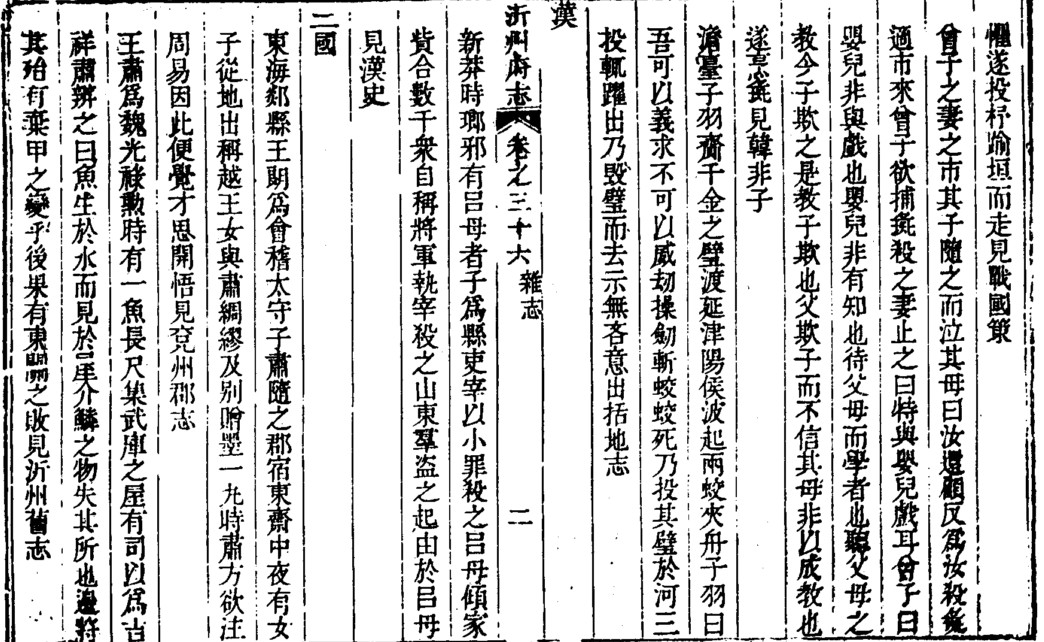 懼遂投杼踰垣而走見戰國策
曾子之妻之市其子隨之而泣其母曰汝還顧反爲汝殺彘
適市來曾子欲捕彘殺之妻止之曰特與嬰兒戲耳曾子曰
嬰兒非與戲也嬰兒非有知也待父母而學者也聽父母之
教今子欺之是教子欺也父欺子而不信其母非以成教也
遂烹彘見韓非子
澹臺子羽齎千金之璧渡延津陽侯波起兩蛟夾舟子羽曰
吾可以義求不可以威刼操劒斬蛟蛟死乃投其璧於河三
投輒躍出乃毀璧而去示無吝意出括地志
漢
沂州府志 卷之三十六 雜志 二
新莽時瑯邪有呂母者子爲縣吏宰以小罪殺之呂母傾家
貲合數千衆自稱將軍執宰殺之山東羣盜之起由於呂母
見漢史
三國
東海郯縣王朗爲會稽太守子肅隨之郡宿東齋中夜有女
子從地出稱越王女與肅綢繆及别贈墨一丸時肅方欲注
周易因此便覺才思開悟見兗州郡志
王肅爲魏光祿勲時有一魚長尺集武庫之屋有司以爲吉
祥肅辨之曰魚生於水而見於屋介鱗之物失其所也邊將
其殆有棄甲之變乎後果有東關之敗見沂州舊志